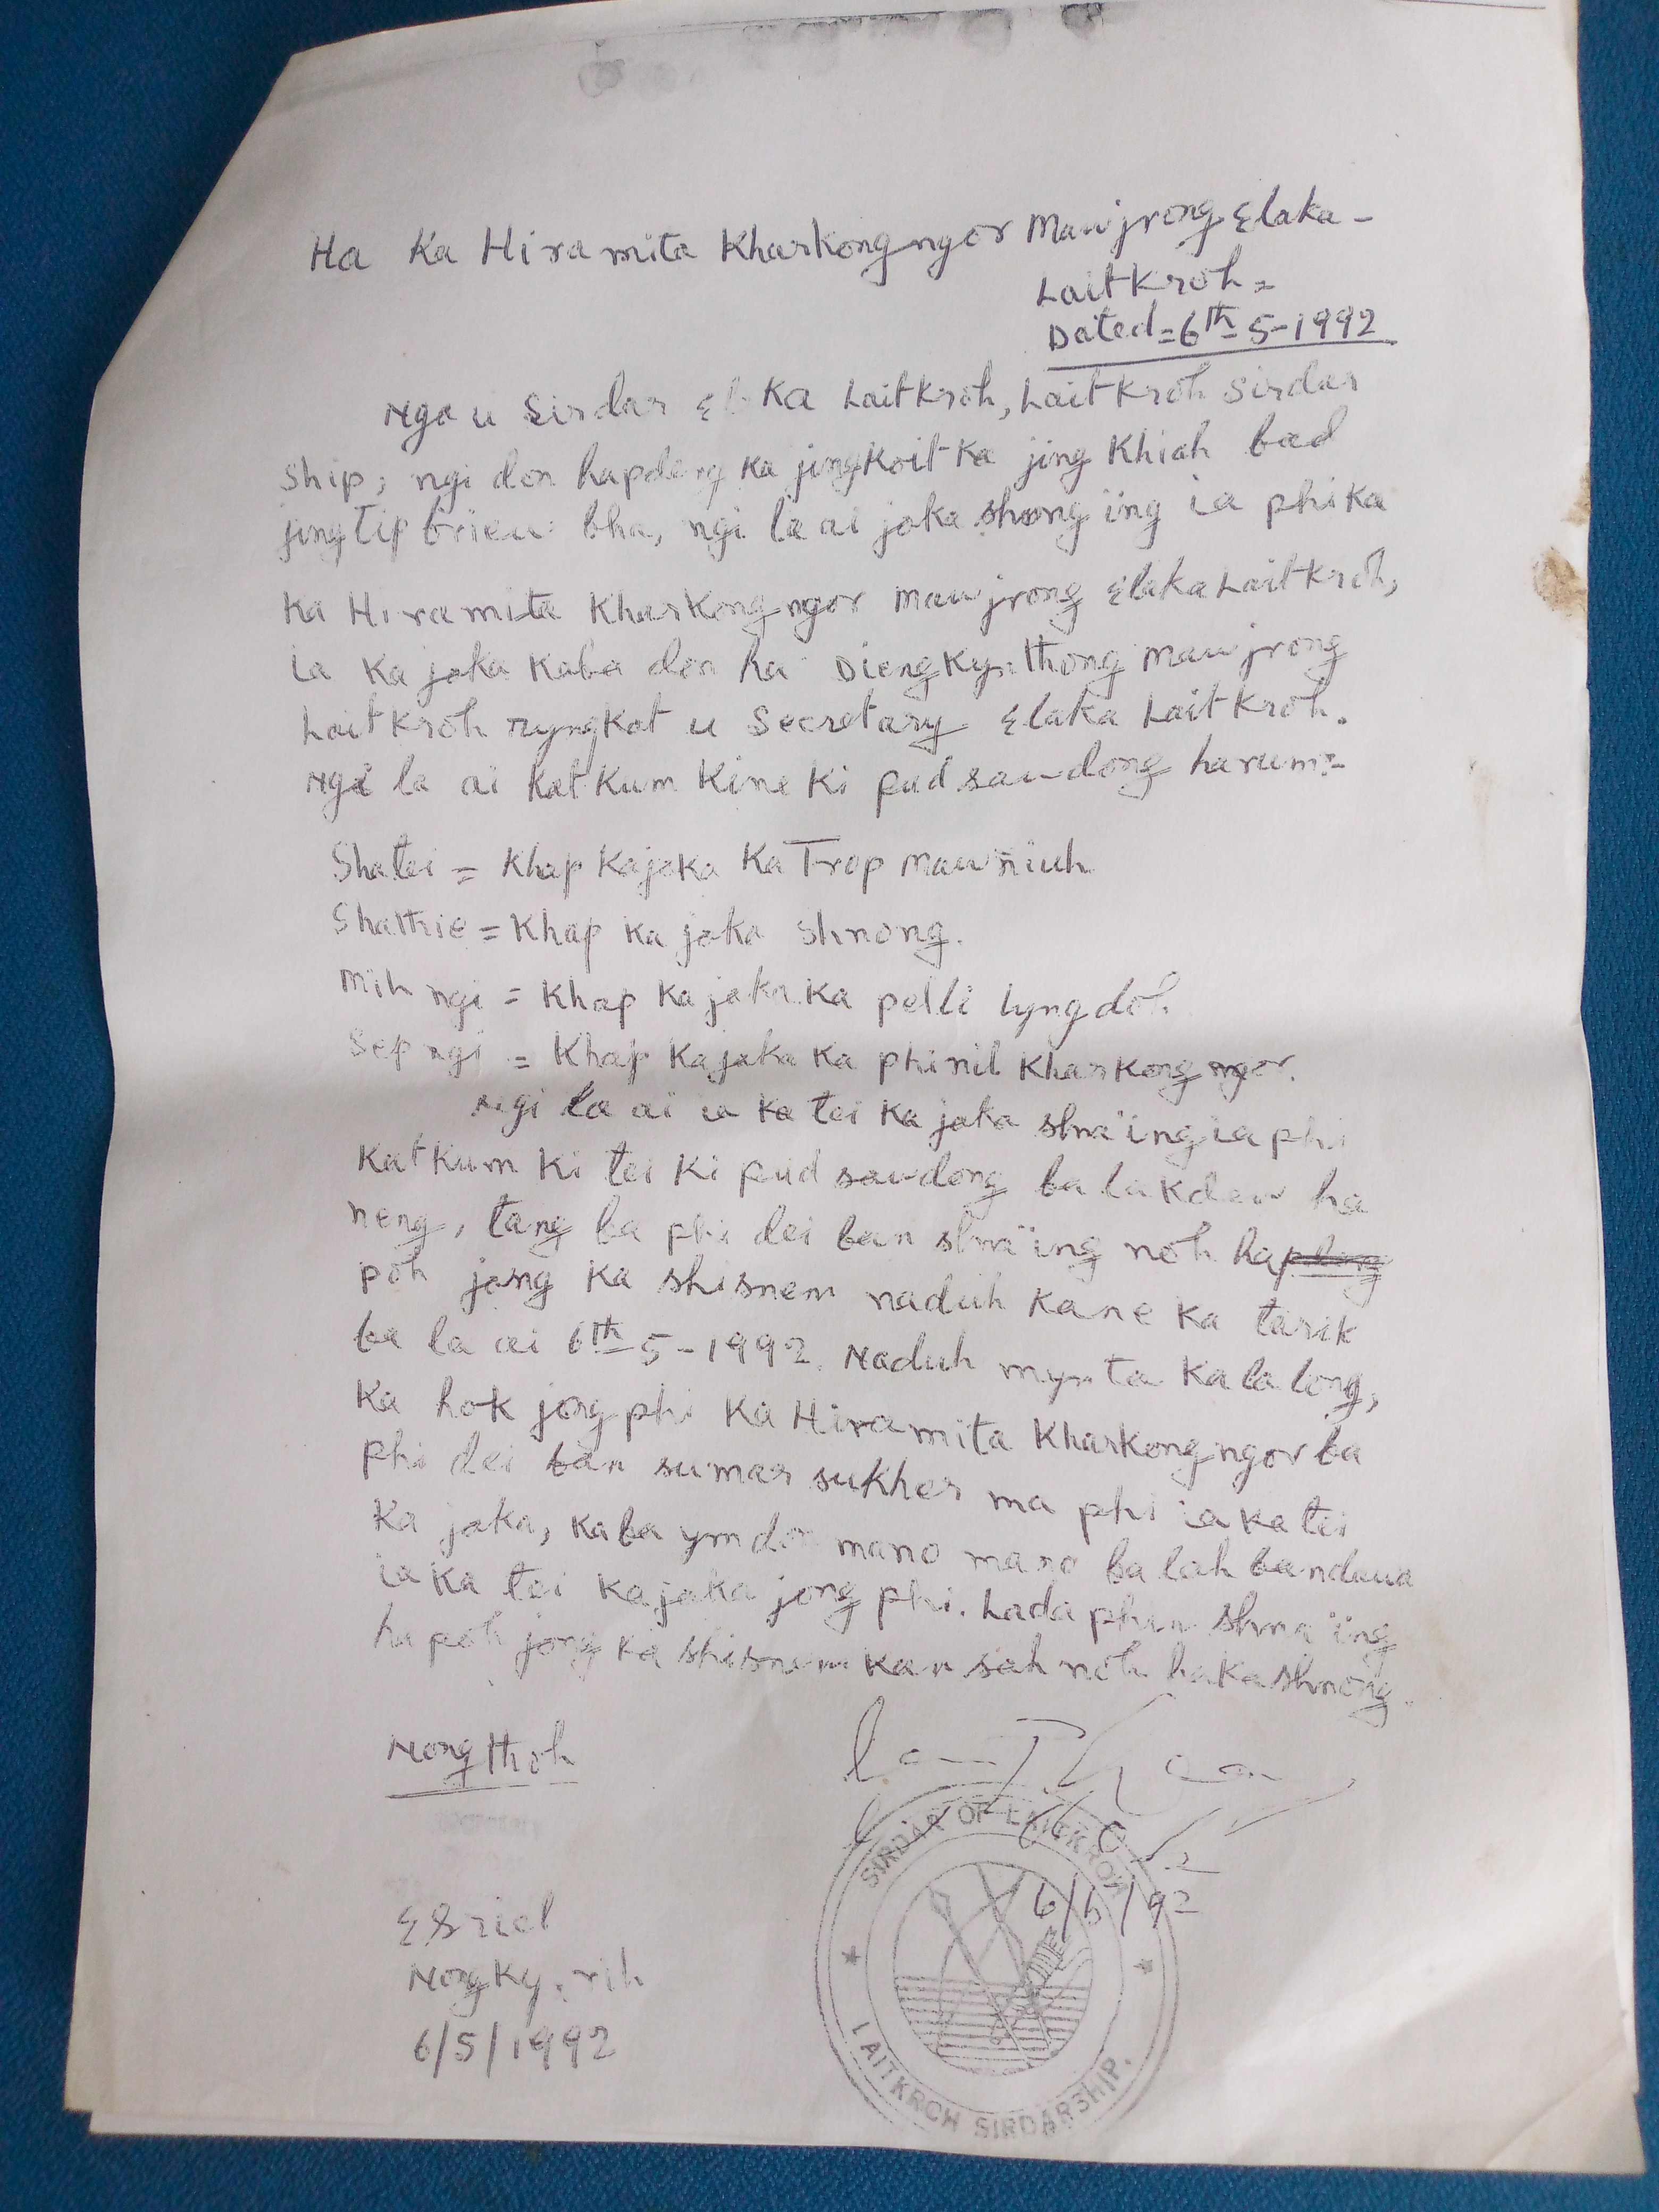 Ha Ka Hiramita Kharkongngor Mawjrong Elaka -
Laitkroh =
Dated = 6th 5 - 1992
Nga u Sirdar Elaka Laitkroh, Laitkroh Sirdar
ship, ngi don hapdeng ka jingkoit ka jing khiah bad
jingtip briew bha, ngi la ai jaka shong ïng ia phi ka
ka Hiramita Kharkongngor Mawjrong Elaka Laitkroh,
ia ka jaka kaba don ha Diengkynthong Mawjrong
Laitkroh ryngkat u Secretary Elaka Laitkroh.
Ngi la ai katkum kine ki pud sawdong harum:-
Shatei = Khap ka jaka ka Trop Mawñiuh
Shathie = Khap ka jaka shnong.
Mih ngi = Khap ka jaka ka pelli lyngdoh.
Sep ngi = Khap ka jaka ka phinil Kharkongngor.
Ngi la ai ia ka tei ka jaka shna ïng ia phi
katkum ki tei ki pud sawdong ba la kdew ha
neng, tang ba phi dei ban shna ïng noh ha
poh jong ka shisnem naduh kane ka tarik
ba la ai 6th 5 - 1992. Naduh mynta ka la long,
ka hok jong phi ka Hiramita Kharkongngor ba
phi dei ban sumar sukher ma phi ia ka tei
ka jaka, kaba ym don mano mano ba lah ban dawa
ia ka tei ka jaka jong phi. Lada phin shna ïng
hapoh jong ka shisnem kan sah noh ha ka shnong.
Nongthoh
6/5/92
SIRDAR OF LAITKROH
LAITKROH SIRDARSHIP.
Nongkynrih
6/5/1992